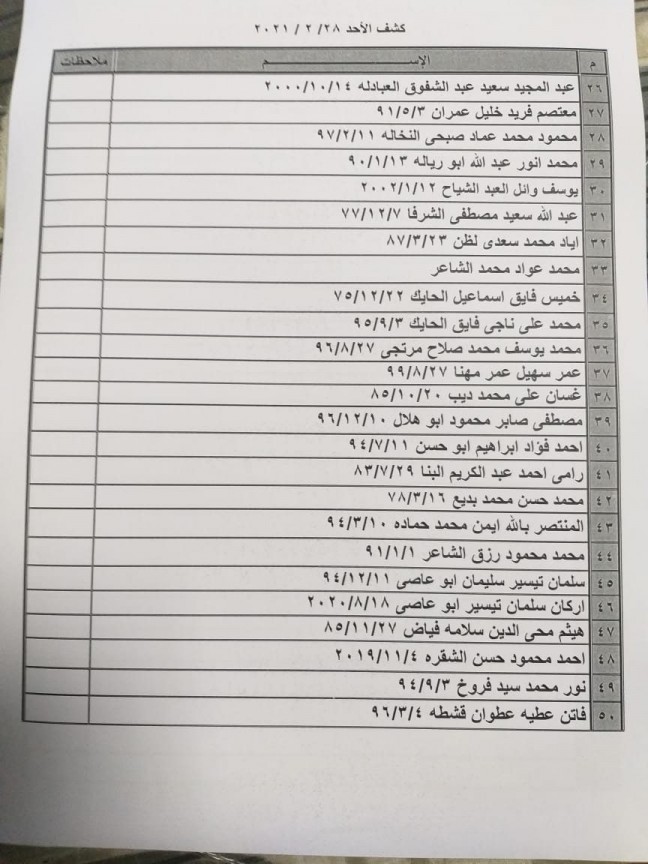 كشف الأحد ٢٨/ ٢ / ٢٠٢١
م الإســـــــــم ملاحظات
٢٦ عبد المجيد سعيد عبد الشفوق العبادله ٢٠٠٠/١٠/١٤
٢٧ معتصم فريد خليل عمران ٩١/٥/٣
٢٨ محمود محمد عماد صبحى النخاله ٩٧/٢/١١
٢٩ محمد انور عبد الله ابو رياله ٩٠/١/١٣
٣٠ يوسف وائل العبد الشياح ٢٠٠٢/١/١٢
٣١ عبد الله سعيد مصطفى الشرفا ٧٧/١٢/٧
٣٢ اياد محمد سعدى لظن ٨٧/٣/٢٣
٣٣ محمد عواد محمد الشاعر
٣٤ خميس فايق اسماعيل الحايك ٧٥/١٢/٢٢
٣٥ محمد على ناجى فايق الحايك ٩٥/٩/٣
٣٦ محمد يوسف محمد صلاح مرتجى ٩٦/٨/٢٧
٣٧ عمر سهيل عمر مهنا ٩٩/٨/٢٧
٣٨ غسان على محمد ديب ٨٥/١٠/٢٠
٣٩ مصطفى صابر محمود ابو هلال ٩٦/١٢/١٠
٤٠ احمد فؤاد ابراهيم ابو حسن ٩٤/٧/١١
٤١ رامى احمد عبد الكريم البنا ٨٣/٧/٢٩
٤٢ محمد حسن محمد بديع ٧٨/٣/١٦
٤٣ المنتصر بالله ايمن محمد حماده ٩٤/٣/١٠
٤٤ محمد محمود رزق الشاعر ٩١/١/١
٤٥ سلمان تيسير سليمان ابو عاصى ٩٤/١٢/١١
٤٦ اركان سلمان تيسير ابو عاصى ٢٠٢٠/٨/١٨
٤٧ هيثم محى الدين سلامه فياض ٨٥/١١/٢٧
٤٨ احمد محمود حسن الشقره ٢٠١٩/١١/٤
٤٩ نور محمد سيد فروخ ٩٤/٩/٣
٥٠ فاتن عطيه عطوان قشطه ٩٦/٣/٤